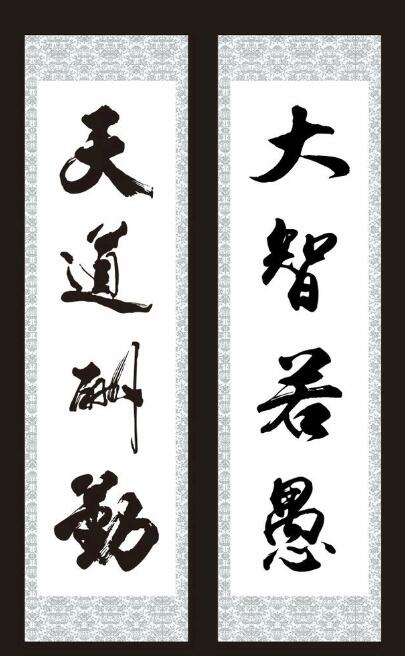 大智若愚
天道酬勤